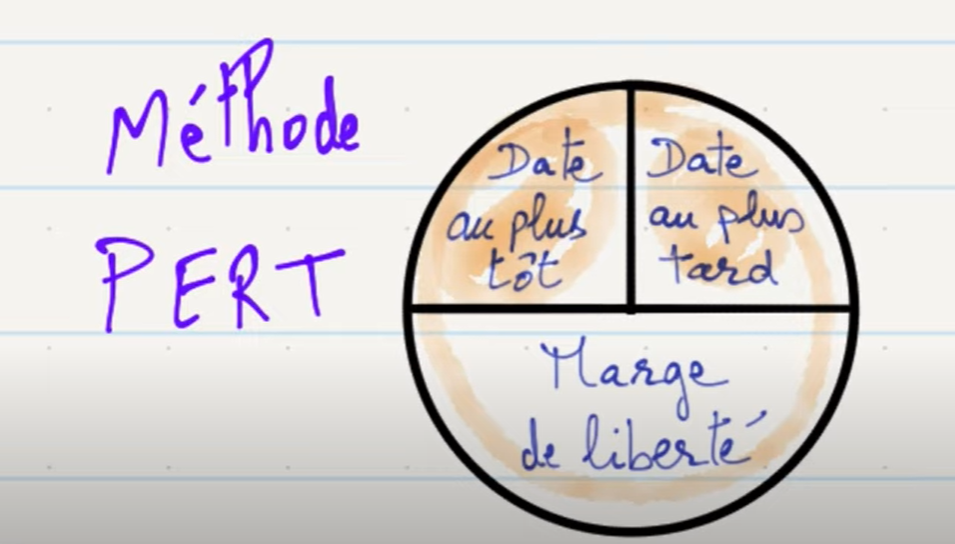 Méthode
PERT
Date
au plus
tôt
Date
au plus
tard
Marge
de liberté